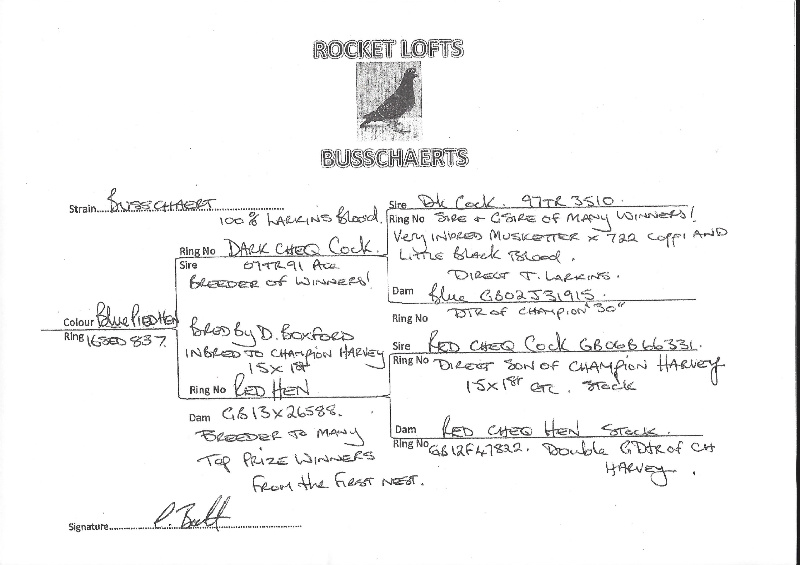 ROCKET LOFTS
BUSSCHAERTS
Strain BUSSCHAERT
100% LARKINS Blood.
Ring No DARK CHEQ COCK.
Sire 07TR91 Ace
BREEDER OF WINNERS!
Colour Blue PIED HEN
Ring 16SED 837.
BRED By D. BOXFORD
INBRED TO CHAMPION HARVEY
15 x 1st
Ring No RED HEN
Dam GB13X26588.
BREEDER TO MANY
TOP PRIZE WINNERS
FROM the FIRST NEST.
Sire Dk Cock. 97TR3510.
Ring No SIRE + GSIRE OF MANY WINNERS!
Very INBRED MUSKETTER x 722 COPPI AND
LITTLE BLACK BLOOD.
DIRECT T. LARKINS.
Dam Blue GB02J31915.
Ring No DTR OF CHAMPION "30"
Sire RED CHEQ COCK GB06B66331.
Ring No DIRECT SON OF CHAMPION HARVEY
15 x 1st ETC. STOCK
Dam RED CHEQ HEN STOCK.
Ring No GB12F47822. Double GDTR of CH
HARVEY.
Signature